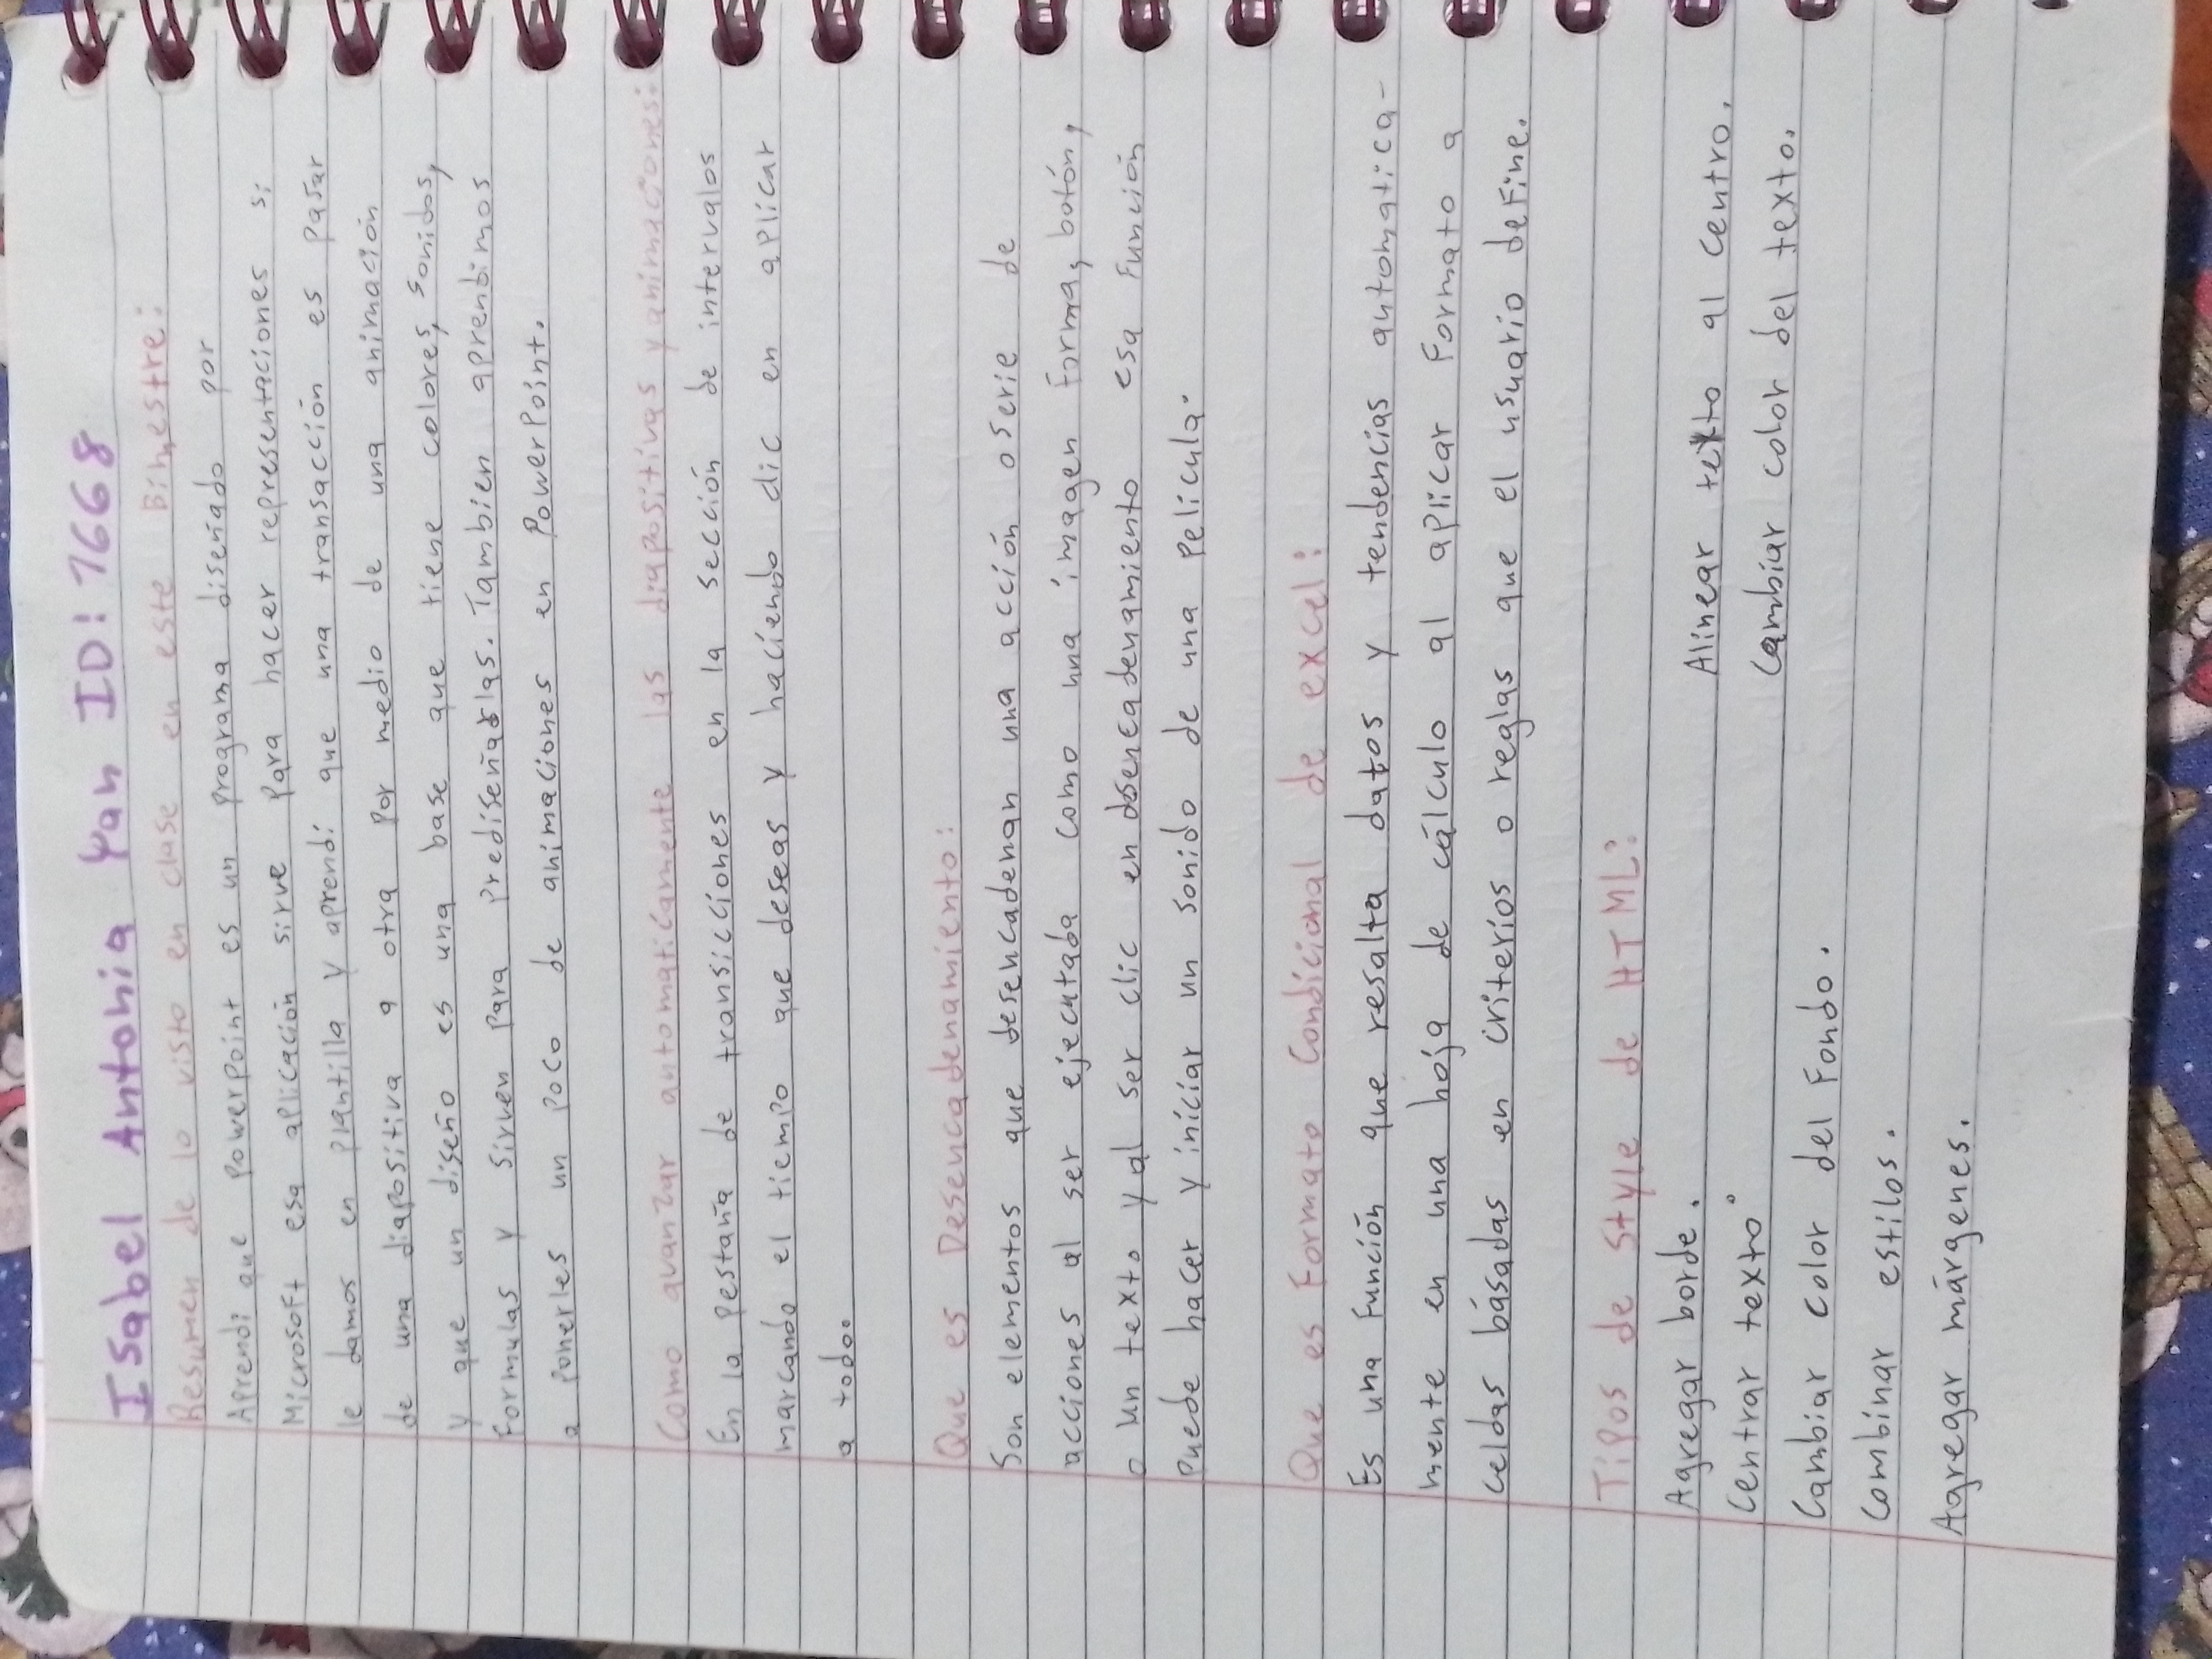 Isabel Antonia Yan ID: 7668
Resumen de lo visto en clase en este Bimestre:
Aprendi que powerpoint es un programa diseñado por
Microsoft esa aplicación sirve para hacer representaciones si
le damos en plantilla y aprendí que una transacción es pasar
de una diapositiva a otra por medio de una animación
y que un diseño es una base que tiene colores, sonidos,
formulas y sirven para prediseñarlas. Tambien aprenbimos
a ponerles un poco de animaciones en PowerPoint.
Como avanzar automaticamente las diapositivas y animaciones:
En la pestaña de transicciones en la sección de intervalos
marcando el tiempo que deseas y haciendo clic en aplicar
a todo.
Que es Desencadenamiento:
Son elementos que desencadenan una acción o serie de
acciones al ser ejecutaba como una imagen forma, botón,
o un texto y al ser clic en desencadenamiento esa función
puede hacer y iniciar un sonido de una película.
Que es Formato Condicional de excel:
Es una función que resalta datos y tendencias automatica-
mente en una hoja de cálculo al aplicar formato a
celdas básadas en criterios o reglas que el usuario define.
Tipos de style de HTML:
Agregar borde. Alinear texto al centro.
Centrar texto. Cambiar color del texto.
Cambiar color del fondo.
Combinar estilos.
Agregar márgenes.